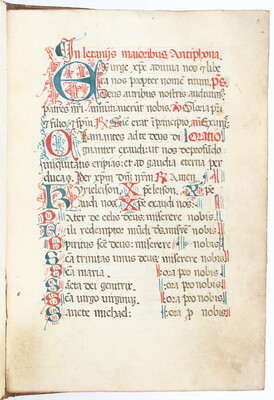 In letaniis maioribus Antiphona.
Exurge xpe adiuva nos & libe
ra nos propter nomen tuum. ps
Deus auribus nostris audivim'
patres nri annuntiaverūt nobis. Gloria pri
& filio & spiri. Sic erat i principio. añ Exurge.
Clamantes ad te deus Oratio
dignanter exaudi: ut nos de profūdo
iniquitatis eripias: et ad gaudia eterna per
ducas. Per xpm dnm nrm. Amen.
Kyrieleison. Xpeleison. Xpe
audi nos. Xpe exaudi nos.
Pater de celis deus: miserere nobis.
Fili redemptor mūdi ds: miserere nobis.
Spiritus scē deus: miserere nobis.
Scā trinitas unus deus: miserere nobis.
Scā maria. ora pro nobis
Sācta dei genitrix. ora pro nobis
Scā virgo virginum. ora pro nobis
Sancte michael: ora p nobis